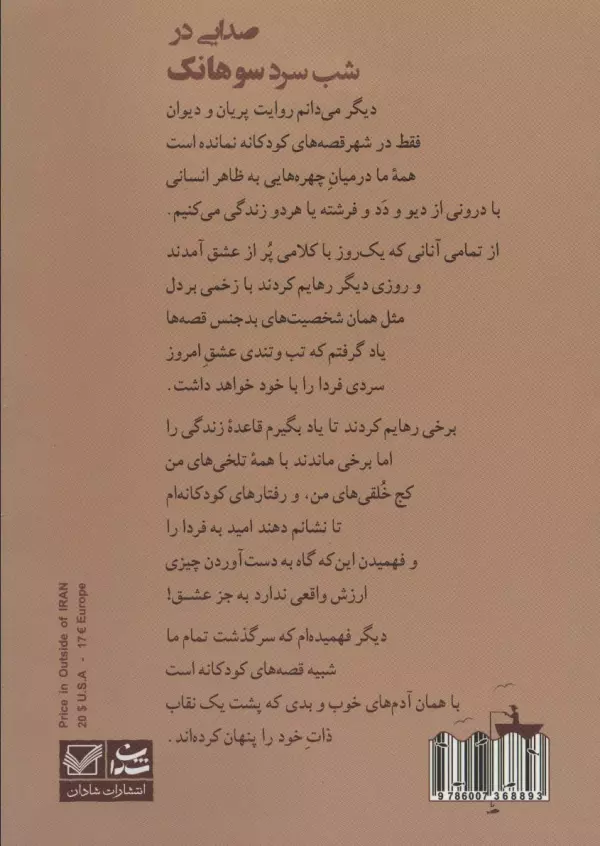 صدایی در
شب سرد سوهانک
دیگر می‌دانم روایت پریان و دیوان
فقط در شهرقصه‌های کودکانه نمانده است
همهٔ ما درمیانِ چهره‌هایی به ظاهر انسانی
با درونی از دیو و دَد و فرشته یا هردو زندگی می‌کنیم.
از تمامی آنانی که یک‌روز با کلامی پُر از عشق آمدند
و روزی دیگر رهایم کردند با زخمی بردل
مثل همان شخصیت‌های بدجنس قصه‌ها
یاد گرفتم که تب وتندی عشقِ امروز
سردی فردا را با خود خواهد داشت.
برخی رهایم کردند تا یاد بگیرم قاعدهٔ زندگی را
اما برخی ماندند با همهٔ تلخی‌های من
کج خُلقی‌های من، و رفتارهای کودکانه‌ام
تا نشانم دهند امید به فردا را
و فهمیدن این‌که گاه به دست‌آوردن چیزی
ارزش واقعی ندارد به جز عشـق!
دیگر فهمیده‌ام که سرگذشت تمام ما
شبیه قصه‌های کودکانه است
با همان آدم‌های خوب و بدی که پشت یک نقاب
ذاتِ خود را پنهان کرده‌اند.
Price in Outside of IRAN
20 $ U.S.A - 17 € Europe
شادان
انتشارات شادان
9 786007 368893